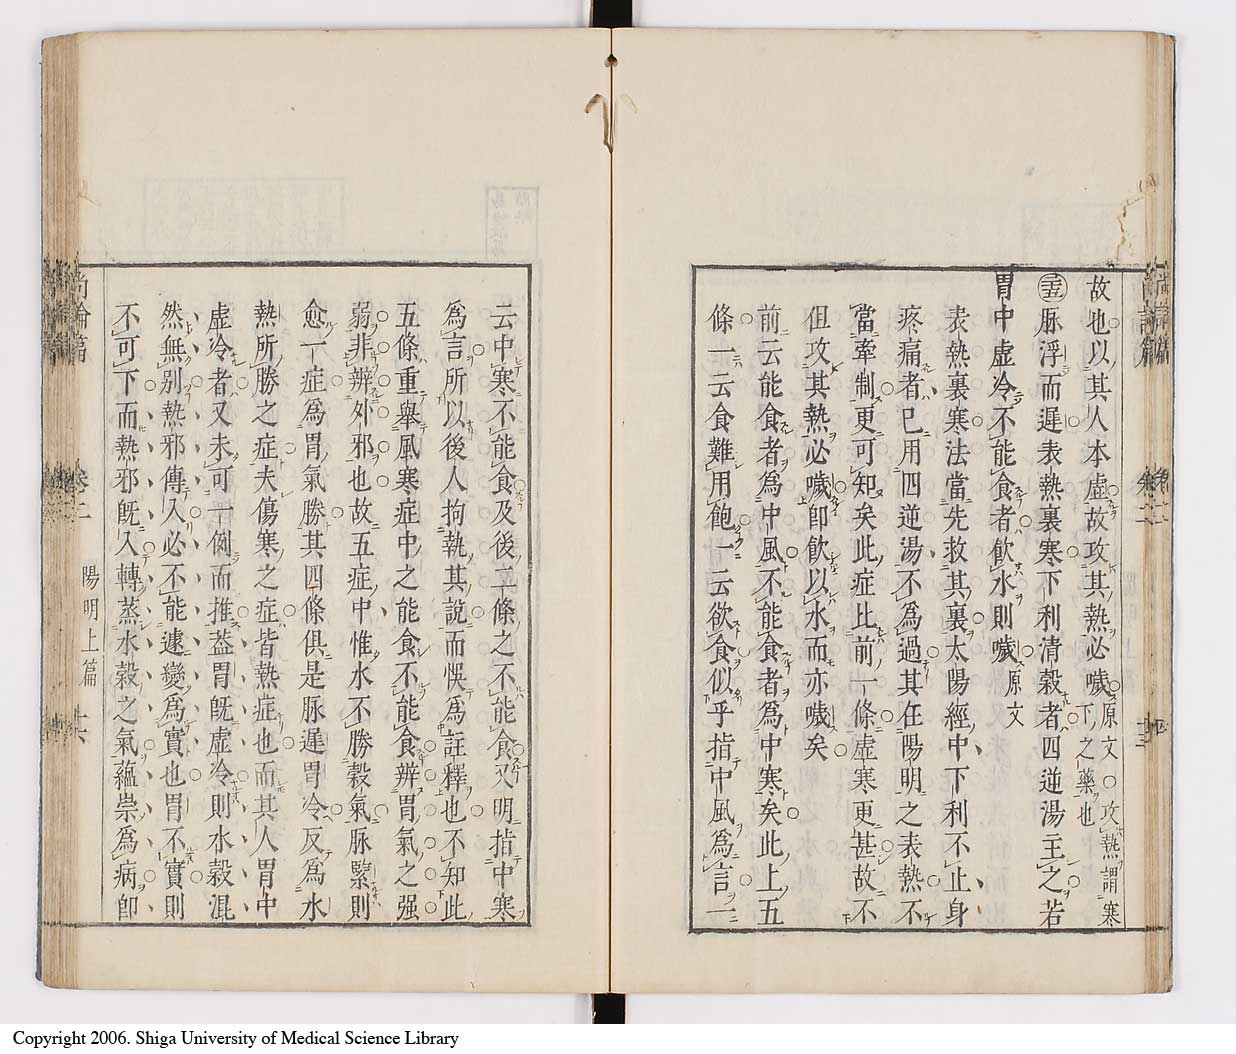 故也以其人本虛故攻其熱必噦原文○攻熱謂寒下之藥也
三五脉浮而遲表熱裏寒下利清穀者四逆湯主之若
胃中虛冷不能食者飲水則噦原文
表熱裏寒法當先救其裏太陽經中下利不止身
疼痛者已用四逆湯不為過其在陽明之表熱不
當牽制更可知矣此症比前一條虛寒更甚故不
但攻其熱必噦卽飲以水而亦噦矣
前云能食者為中風不能食者為中寒矣此上五
條一云食難用飽一云欲食似乎指中風為言一
云中寒不能食及後二條之不能食又明指中寒
為言所以後人拘執其說而悞為註釋也不知此
五條重舉風寒症中之能食不能食辨胃氣之强
弱非辨外邪也故五症中惟水不勝穀氣脉緊則
愈一症為胃氣勝其四條俱是脉遲胃冷反為水
熱所勝之症夫傷寒之症皆熱症也而其人胃中
虛冷者又未可一例而推葢胃旣虛冷則水穀混
然無别熱邪傳入必不能遽變為實也胃不實則
不可下而熱邪旣入轉蒸水穀之氣蘊崇為病卽
尚論篇
卷二
陽明上篇
十六
Copyright 2006. Shiga University of Medical Science Library